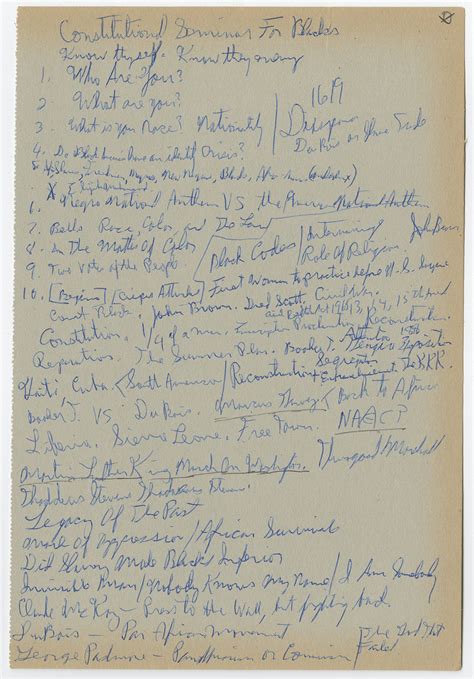 Constitutional Seminar For Blacks
Know thyself - Know thy enemy
1. Who Are You?
2. What are you?
3. What is your Race? Nationality
1619
Diaspora
DuBois on Slave Trade
4. Do Black Americans have an identity Crisis?
Negro, New Negro, Blacks, Afro
6. Negro National Anthem VS the American National Anthem
7. Bells Race, Color, and The Law
8. In The Matter of Color
9. The Vote of the People
Black Codes / Interming
Role Of Religion
John Brown
10. First Woman to practice before U.S. Supreme
Court Black. John Brown. Dred Scott. Civil War
Civil Rights Act 1961, 13, 14, 15th Amend
Constitution. 1/4 of a man. Emancipation Proclamation, Reconstruction
Reparations. The Summer Plan. Booker T. Atlanta
Exposition
Haiti, Cuba (South America) / Reconstruction
The KKK.
Booker T. VS DuBois. Marcus Garvey Back to Africa
Liberia. Sierra Leone. Free Town. NAACP
Martin Luther King March On Washington. Thurgood Marshall
Thaddeus Stevens Thaddeus Stevens
Legacy Of The Past
Mark of Oppression / African Survivals
Did Slavery Make Blacks Inferior
Invisible Man / Nobody Knows My Name / I Am Somebody
Claude McKay - Press to the Wall, but fighting back.
DuBois - Pan African movement
George Padmore - Panafricanism or Communism
The God that
Failed